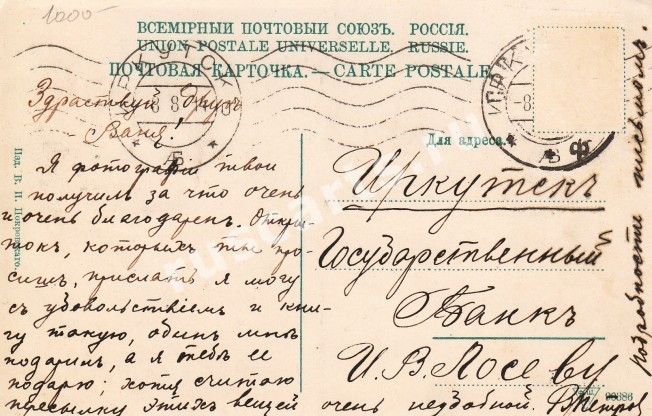 1000-
ВСЕМІРНЫЙ ПОЧТОВЫЙ СОЮЗЪ. РОССІЯ.
UNION POSTALE UNIVERSELLE. RUSSIE.
ПОЧТОВАЯ КАРТОЧКА. — CARTE POSTALE
ИРКУТСК
Здраствуй Другъ
Ваня!
Я фотографіи твои
получилъ за что очень
и очень благодаренъ. Откры-
токъ, которыхъ ты про-
сишь, прислать я могу
съ удовольствіемъ и кни-
гу такую, одинъ мнѣ
подарилъ, а я тебѣ ее
подарю; хотя считаю
пересылку этихъ вещей очень неудобной.
Для адреса.
Иркутскъ
Государственный
Банкъ
И. В. Лосеву
Подробности письмомъ.
Изд. В. П. Покровскаго.